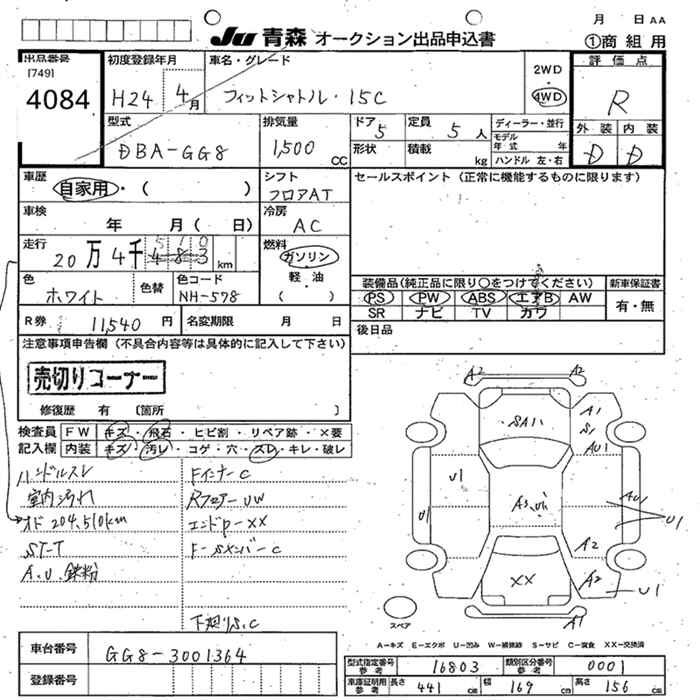 月 日 AA
JU 青森 オークション出品申込書 ①商 組 用
出品番号 初度登録年月 車名・グレード 2WD 評価点
[749]
4084 H24 4月 フィットシャトル・15C 4WD R
型式 排気量 ドア 定員 ディーラー・並行 外装 内装
DBA-GG8 1,500 CC 5 5 人 モデル年式 年 D D
形状 積載 kg ハンドル 左・右
車歴 自家用・( ) シフト フロアAT セールスポイント (正常に機能するものに限ります)
車検 年 月( 日) 冷房 AC
走行 20万4千510 483 km 燃料 ガソリン
軽・油
( )
色 ホワイト 色替 色コード NH-578
装備品(純正品に限り○をつけてください) 新車保証書
PS PW ABS エアB AW 有・無
SR ナビ TV カワ
R券 11,540 円 名変期限 月 日 後日品
注意事項申告欄 (不具合内容等は具体的に記入して下さい)
売切りコーナー
修復歴 有 [箇所 ]
検査員 FW キズ・飛石・ヒビ割・リペア跡・X要
記入欄 内装 キズ・汚レ・コゲ・穴・スレ・キレ・破レ
ハンドルスレ Fインナー C
室内汚れ Rフロアー UW
オド 204,510km エンドP-XX
ST-T F-Sメンバー C
A.U.鉄粉
下廻りS.C
A2 A2
SA11 A1
S1
AU1
U1 U1 AU1 U1
A2
XX A2 U1
A1
スペア
A-キズ E-エクボ U-凹み W-補修跡 S-サビ C-腐食 XX-交換済
車台番号 GG8-3001364
登録番号
型式指定番号 参考 16803 類別区分番号 参考 0001
車庫証明用 参考 長さ 441 cm 幅 169 cm 高さ 156 cm